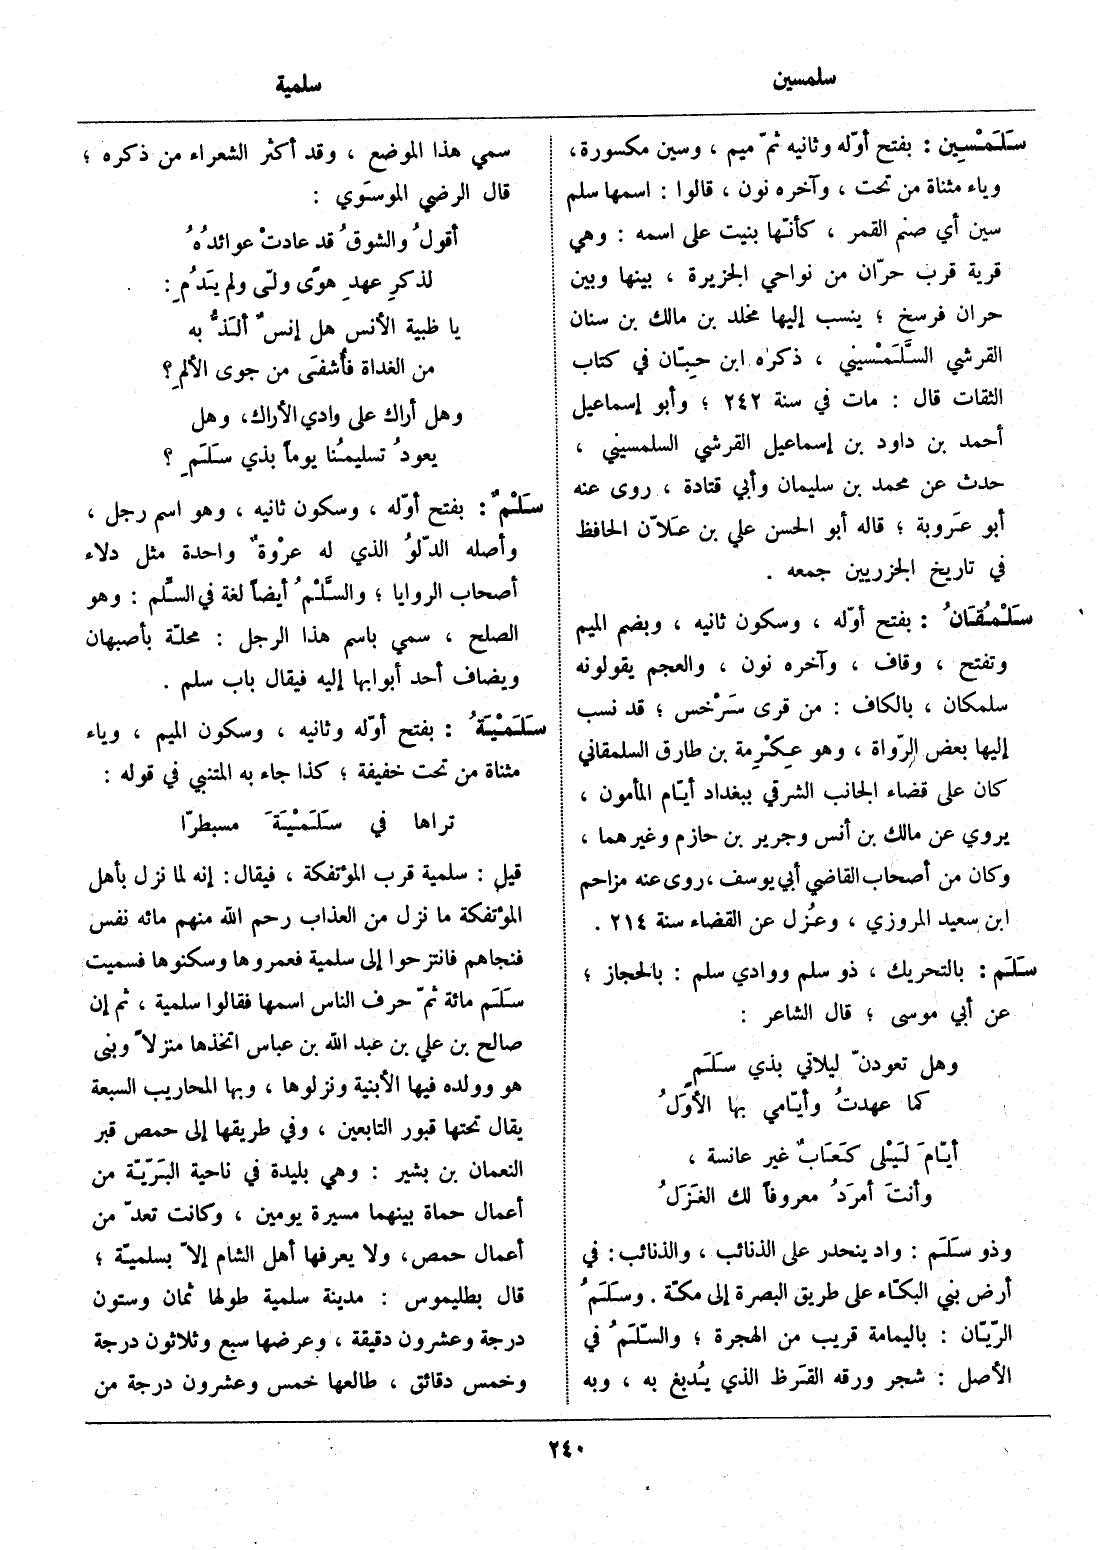 سلمسين
سلمية
سَلَمْسِين : بفتح أوّله وثانيه ثمّ ميم ، وسين مكسورة،
وياء مثناة من تحت ، وآخره نون ، قالوا : اسمها سلم
سين أي صنم القمر ، كأنّها بنيت على اسمه : وهي
قرية قرب حرّان من نواحي الجزيرة ، بينها وبين
حران فرسخ ؛ ينسب إليها مخلد بن مالك بن سنان
القرشي السَّلَمْسيني ، ذكره ابن حبّان في كتاب
الثقات قال : مات في سنة ٢٤٢ ؛ وأبو إسماعيل
أحمد بن داود بن إسماعيل القرشي السلمسيني ،
حدث عن محمد بن سليمان وأبي قتادة ، روى عنه
أبو عَروبة ؛ قاله أبو الحسن علي بن عَلاّن الحافظ
في تاريخ الجزريين جمعه .
سَلْمُقَانُ : بفتح أوّله ، وسكون ثانيه ، وبضم الميم
وتفتح ، وقاف ، وآخره نون ، والعجم يقولونه
سلمكان ، بالكاف : من قرى سَرْخس ؛ قد نسب
إليها بعض الرّواة ، وهو عِكْرِمة بن طارق السلمقاني
كان على قضاء الجانب الشرقي ببغداد أيّام المأمون ،
يروي عن مالك بن أنس وجرير بن حازم وغيرهما ،
وكان من أصحاب القاضي أبي يوسف ، روى عنه مزاحم
ابن سعيد المروزي ، وعُزل عن القضاء سنة ٢١٤ .
سَلَم : بالتحريك ، ذو سلم ووادي سلم : بالحجاز ؛
عن أبي موسى ؛ قال الشاعر :
وهل تعودنّ ليلاتي بذي سَلَمٍ
كما عهدتُ وأيّامي بها الأُوَلُ
أيّامَ لَيْلى كَعَابٌ غير عانسة ،
وأنتَ أمرَدُ معروفاً لك الغَزَلُ
وذو سَلَم : واد ينحدر على الذنائب ، والذنائب : في
أرض بني البكّاء على طريق البصرة إلى مكّة . وسَلَمُ
الرّيّان : باليمامة قريب من الهجرة ؛ والسّلَمُ في
الأصل : شجر ورقه القَرَظ الذي يُدبغ به ، وبه
سمي هذا الموضع ، وقد أكثر الشعراء من ذكره ؛
قال الرضي الموسَوي :
أقولُ والشوقُ قد عادتْ عوائدُهُ
لذكرِ عهدِ هوًى ولّى ولم يَدُمِ :
يا ظبية الأنس هل إنسٌ ألَذُّ به
من الغداة فأُشفَى من جوى الألمِ ؟
وهل أراك على وادي الأراك، وهل
يعودُ تسليمُنا يوماً بذي سَلَمِ ؟
سَلْمٌ : بفتح أوّله ، وسكون ثانيه ، وهو اسم رجل ،
وأصله الدّلوُ الذي له عروْةٌ واحدة مثل دلاء
أصحاب الروايا ؛ والسَّلْمُ أيضاً لغة في السِّلم : وهو
الصلح ، سمي باسم هذا الرجل : محلّة بأصبهان
ويضاف أحد أبوابها إليه فيقال باب سلم .
سَلَمْيَةُ : بفتح أوّله وثانيه ، وسكون الميم ، وياء
مثناة من تحت خفيفة ؛ كذا جاء به المتنبي في قوله :
تراها في سَلَمْيَةَ مسبطرّا
قيل : سلمية قرب المؤتفكة ، فيقال : إنه لما نزل بأهل
المؤتفكة ما نزل من العذاب رحم الله منهم مائه نفس
فنجاهم فانتزحوا إلى سلمية فعمروها وسكنوها فسميت
سَلَم مائة ثمّ حرف الناس اسمها فقالوا سلمية ، ثم إن
صالح بن علي بن عبد الله بن عباس اتخذها منزلاً وبنى
هو وولده فيها الأبنية ونزلوها ، وبها المحاريب السبعة
يقال تحتها قبور التابعين ، وفي طريقها إلى حمص قبر
النعمان بن بشير : وهي بليدة في ناحية البَرّيّة من
أعمال حماة بينهما مسيرة يومين ، وكانت تعدّ من
أعمال حمص، ولا يعرفها أهل الشام إلاّ بسلميّة ؛
قال بطليموس : مدينة سلمية طولها ثمان وستون
درجة وعشرون دقيقة ، وعرضها سبع وثلاثون درجة
وخمس دقائق ، طالعها خمس وعشرون درجة من
٢٤٠